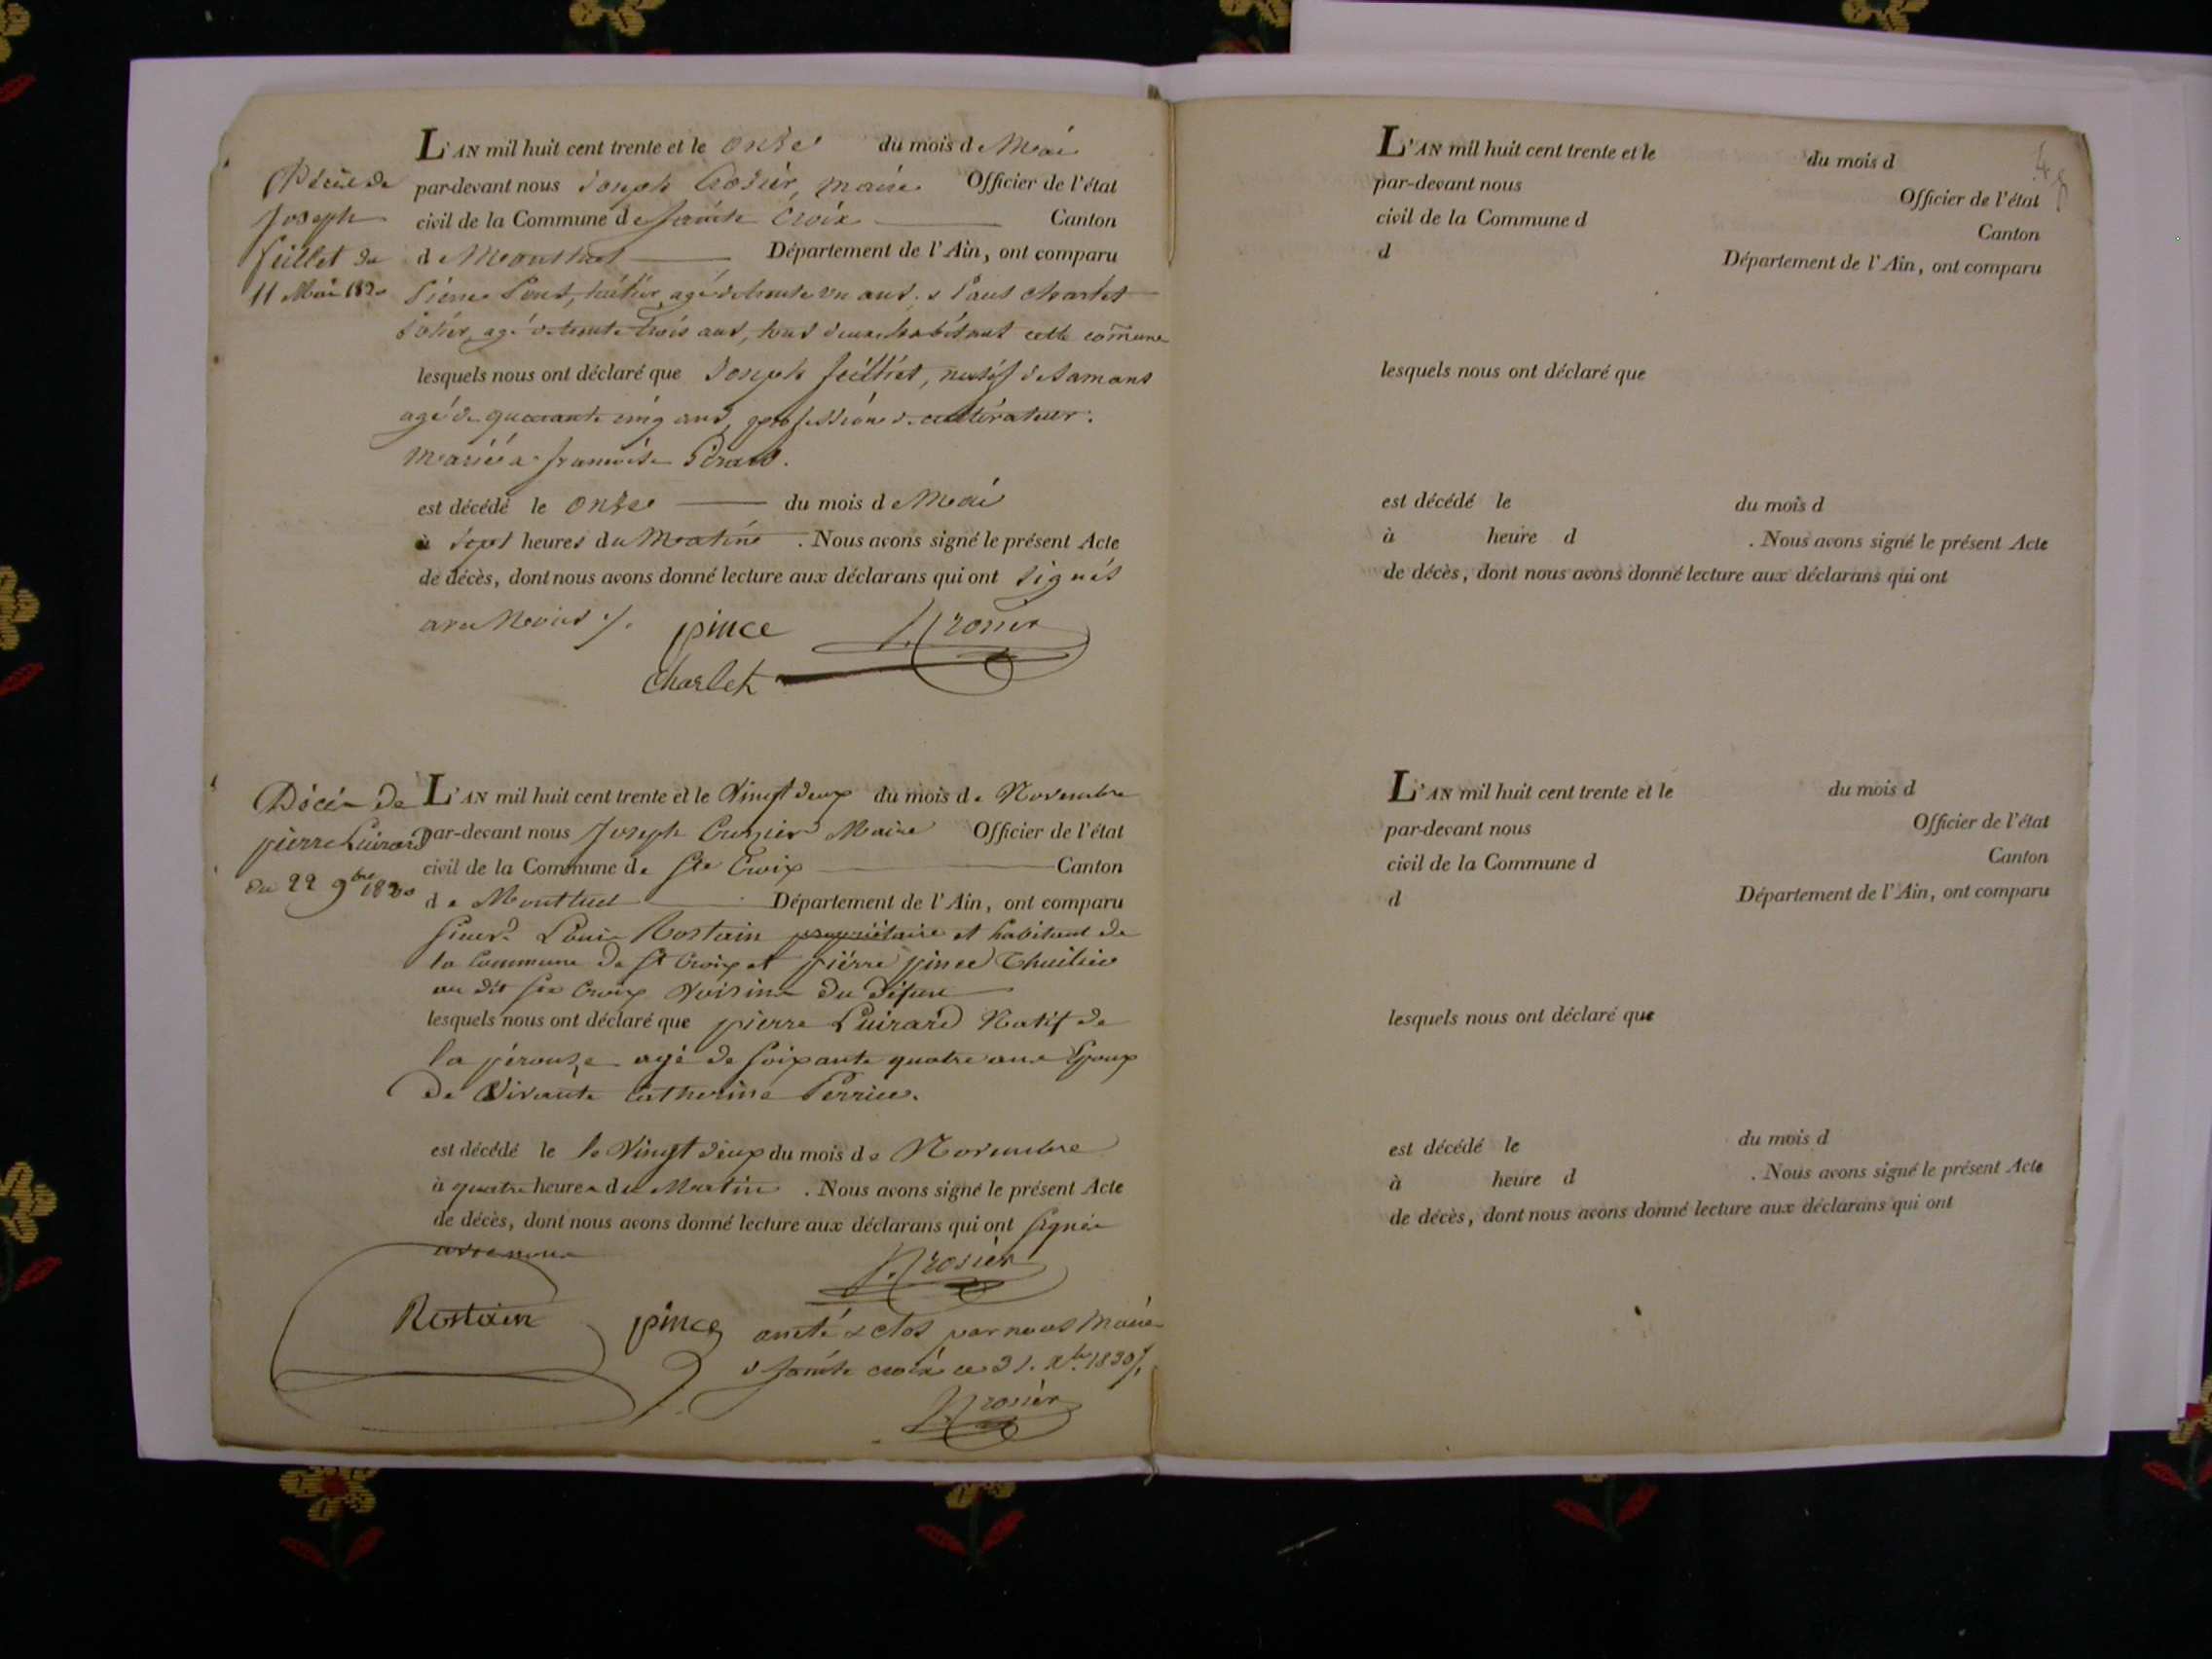 Décès de
Joseph
feillet du
11 Mai 1830
L'AN mil huit cent trente et le onze du mois de Mai
par-devant nous Joseph Crozier, maire Officier de l'état
civil de la Commune de Sainte Croix Canton
de Montluel Département de l'Ain, ont comparu
Pierre agé de trente un ans, & Paul Charlet
agé de trente trois ans, tous deux habitant cette com̃une
lesquels nous ont déclaré que Joseph feilliet, natif de
agé de quarante cinq ans, profession de cultivateur.
Marié à françoise
est décédé le onze du mois de Mai
à sept heures du Matin . Nous avons signé le présent Acte
de décès, dont nous avons donné lecture aux déclarans qui ont signés
avec Nous ./.
pince J. Crozier
Charlet
Décès de
pierre Luirard
du 22 9bre 1830
L'AN mil huit cent trente et le Vingt deux du mois de Novembre
par-devant nous Joseph Crozier Maire Officier de l'état
civil de la Commune de Ste Croix Canton
de Montluel Département de l'Ain, ont comparu
sieurs Louis Rostain propriétaire et habitant de
la Commune de St Croix et pierre pince Thuilier
au dit Ste Croix Voisins du défunt
lesquels nous ont déclaré que pierre Luirard Natif de
la pérouze agé de soixante quatre ans Epoux
de Vivante Catherine Perrier.
est décédé le le Vingt deux du mois de Novembre
à quatre heures du Matin . Nous avons signé le présent Acte
de décès, dont nous avons donné lecture aux déclarans qui ont signés
avec nous
J. Crozier
Rostain pince
arreté & clos par nous Maire
de Sainte croix ce 31. Xbre 1830 ./.
J. Crozier
L'AN mil huit cent trente et le du mois d
par-devant nous Officier de l'état
civil de la Commune d Canton
d Département de l'Ain, ont comparu
lesquels nous ont déclaré que
est décédé le du mois d
à heure d . Nous avons signé le présent Acte
de décès, dont nous avons donné lecture aux déclarans qui ont
L'AN mil huit cent trente et le du mois d
par-devant nous Officier de l'état
civil de la Commune d Canton
d Département de l'Ain, ont comparu
lesquels nous ont déclaré que
est décédé le du mois d
à heure d . Nous avons signé le présent Acte
de décès, dont nous avons donné lecture aux déclarans qui ont